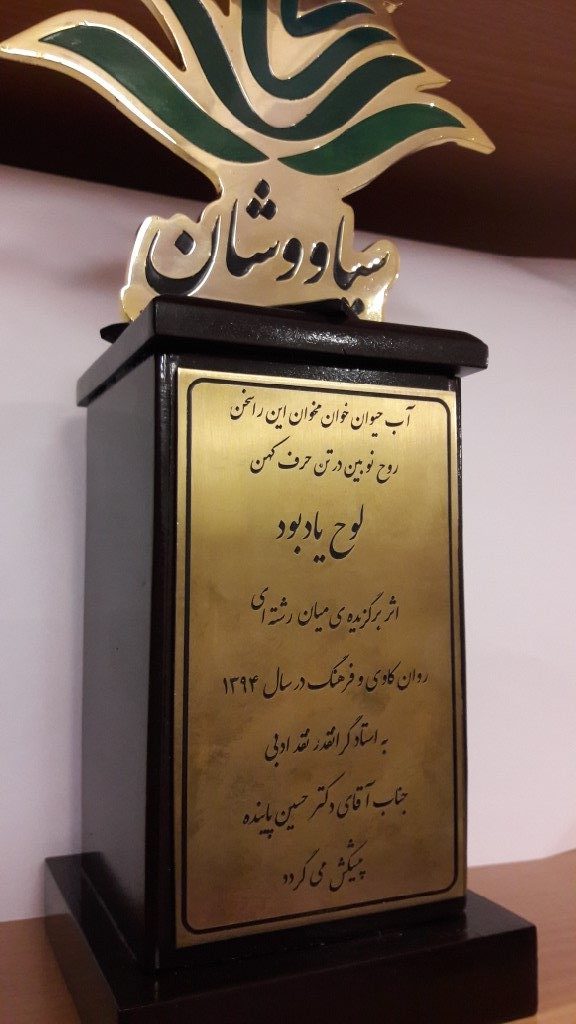 سیاووشان
آب حیوان خوان مخوان این را سخن
روح نو بین در تن حرف کهن
لوح یادبود
اثر برگزیده ی میان رشته ای
روان کاوی و فرهنگ در سال ۱۳۹۴
به استاد گرانقدر نقد ادبی
جناب آقای دکتر حسین پاینده
پیشکش می گردد